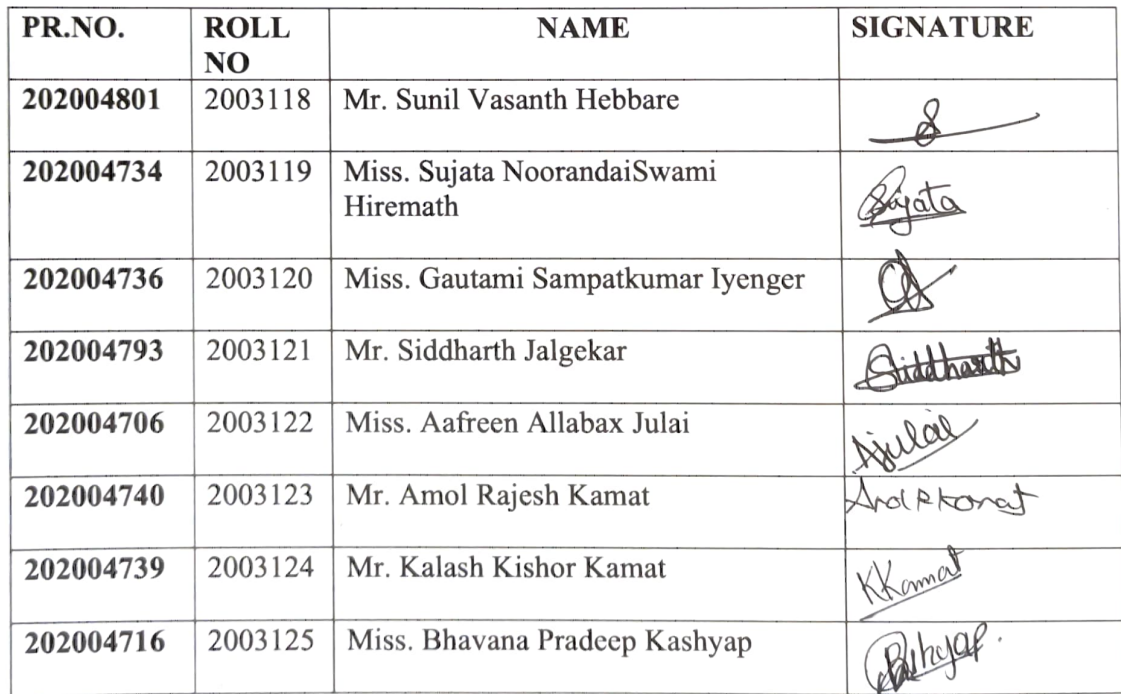 PR.NO. ROLL NO NAME SIGNATURE
202004801 2003118 Mr. Sunil Vasanth Hebbare
202004734 2003119 Miss. Sujata NoorandaiSwami Hiremath Sujata
202004736 2003120 Miss. Gautami Sampatkumar Iyenger
202004793 2003121 Mr. Siddharth Jalgekar Siddharth
202004706 2003122 Miss. Aafreen Allabax Julai AJulai
202004740 2003123 Mr. Amol Rajesh Kamat Amol R Kamat
202004739 2003124 Mr. Kalash Kishor Kamat KKamat
202004716 2003125 Miss. Bhavana Pradeep Kashyap